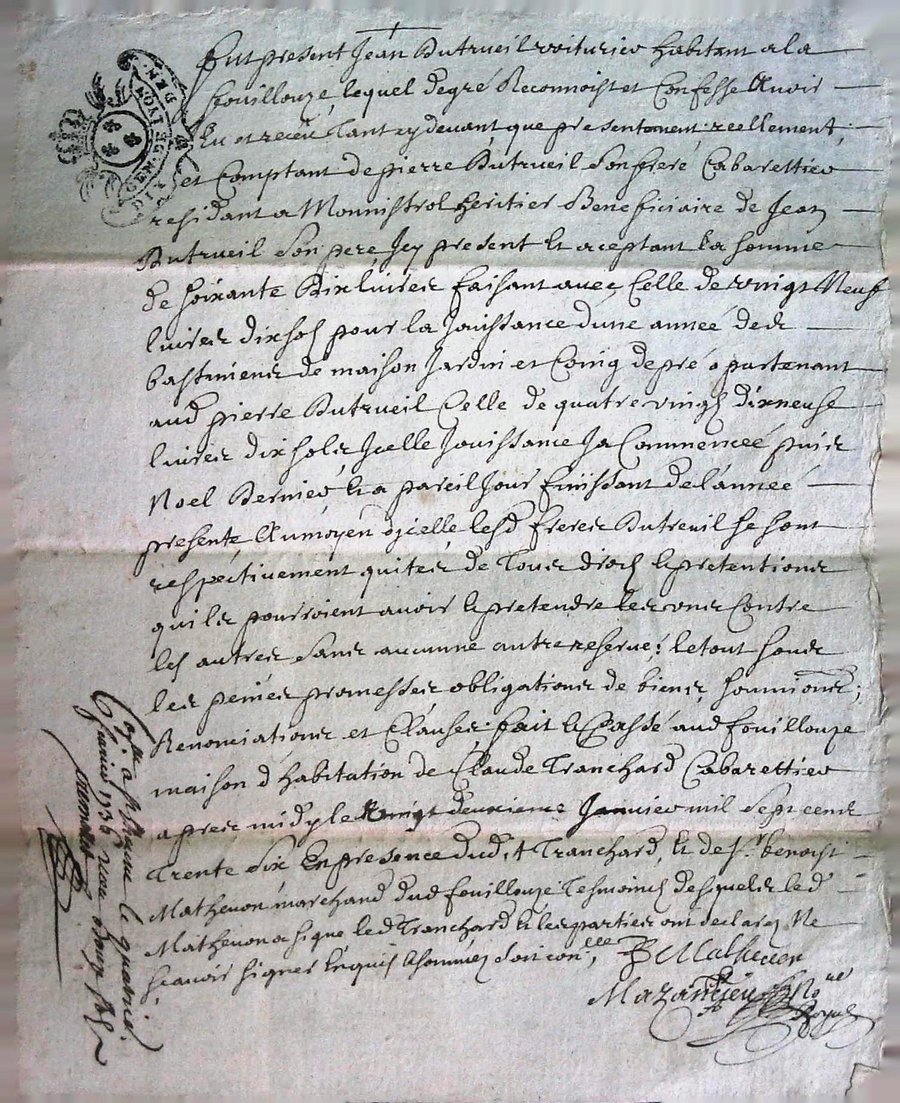 GEN. DE LYON
Fut present Jean Dutrueil voiturier habitant a la
fouillouze, lequel de gré Reconnoist et Confesse Avoir
Eu et receu Tant cy devant que presentement, reellement,
et Comptant de pierre Dutrueil Son frere Cabarettier
residant a Monnistrol heritier Beneficiaire de Jean
Dutrueil Son pere, Icy present Et aceptant la Somme
de Soixante Dix livres faisant avec Celle de vingt Neuf
livres dix sols pour la Jouissance dune année des
bastimens de maison Jardin et Coing de pré apartenant
aud pierre Dutrueil Celle de quatre vingt dixneuf
livres dix sols Icelle Jouissance Ja Commencée puis
Noel Dernier, Et a pareil Jour finissant de lannée
presente, Aumoyen dicelle lesd freres Dutreuil se sont
respectivement quites de Tous droits Et pretentions
quils pourroient avoir Et pretendre Les uns Contre
les autres Sans aucunne autre reserve; le tout Sous
les peines promesses obligations de biens, soumions;
Renonciations et Clauses; fait Et Passé aud fouillouze
maison d habitation de Claude Tranchard Cabarettier
apres midy le vingt deuxieme Janvier mil Sept cens
Trente Six En presence dud.t Tranchard, Et de Sr. benoist
Mathevon marchand dud fouillouze Tesmoins desquels led
Mathevon a signe led Tranchard Et les parties ont declarez Ne
scavoir signer Enquis & sommez
B Mathevon
No
Royal
a St
le quatrie
fevrier 1736